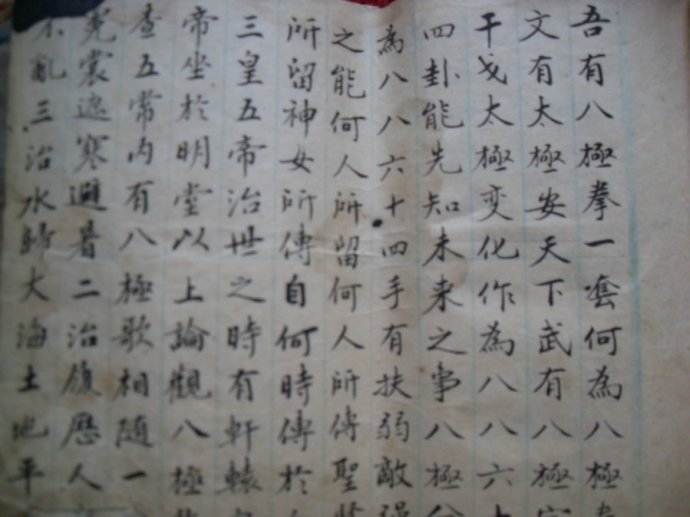 吾有八極拳一套何為八極
文有太極安天下武有八極定
干戈太極变化作為八八六十
四卦能先知未来之事八極分
為八八六十四手有扶弱敵强
之能何人所留何人所傳聖
所留神女所傳自何時傳於
三皇五帝治世之時有軒轅
帝坐於明堂以上論觀八極
查五常内有八極歌相随一
衣裳遮寒避暑二治履歷人
不亂三治水歸大海土地平